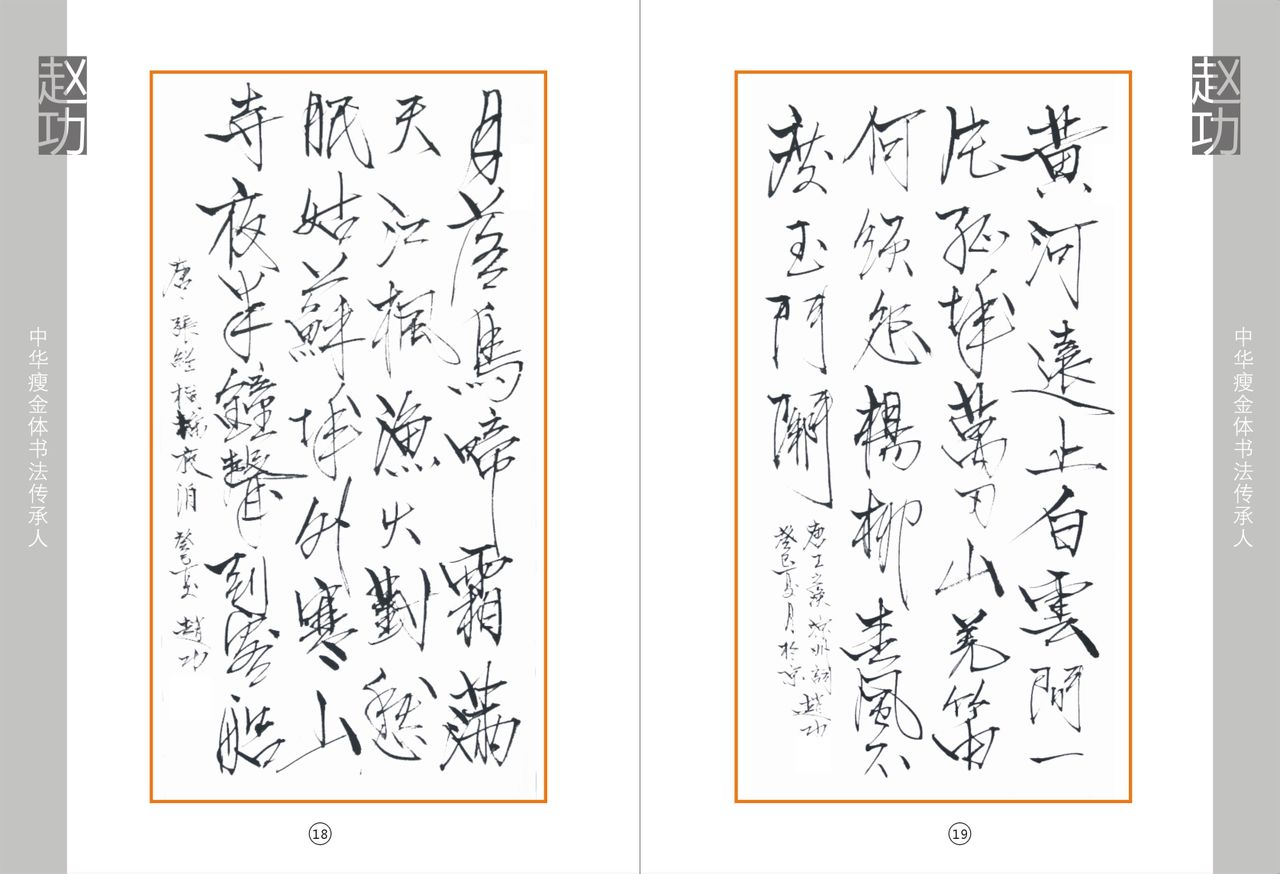 赵功
中华瘦金体书法传承人
月落烏啼霜滿
天江楓漁火對愁
眠姑蘇城外寒山
寺夜半鐘聲到客船
唐張繼楓橋夜泊 癸巳夏 趙功
18
赵功
中华瘦金体书法传承人
黃河遠上白雲間一
片孤城萬刃山羌笛
何須怨楊柳春風不
度玉門關
唐王之渙涼州詞 趙功
癸巳夏月於京
19